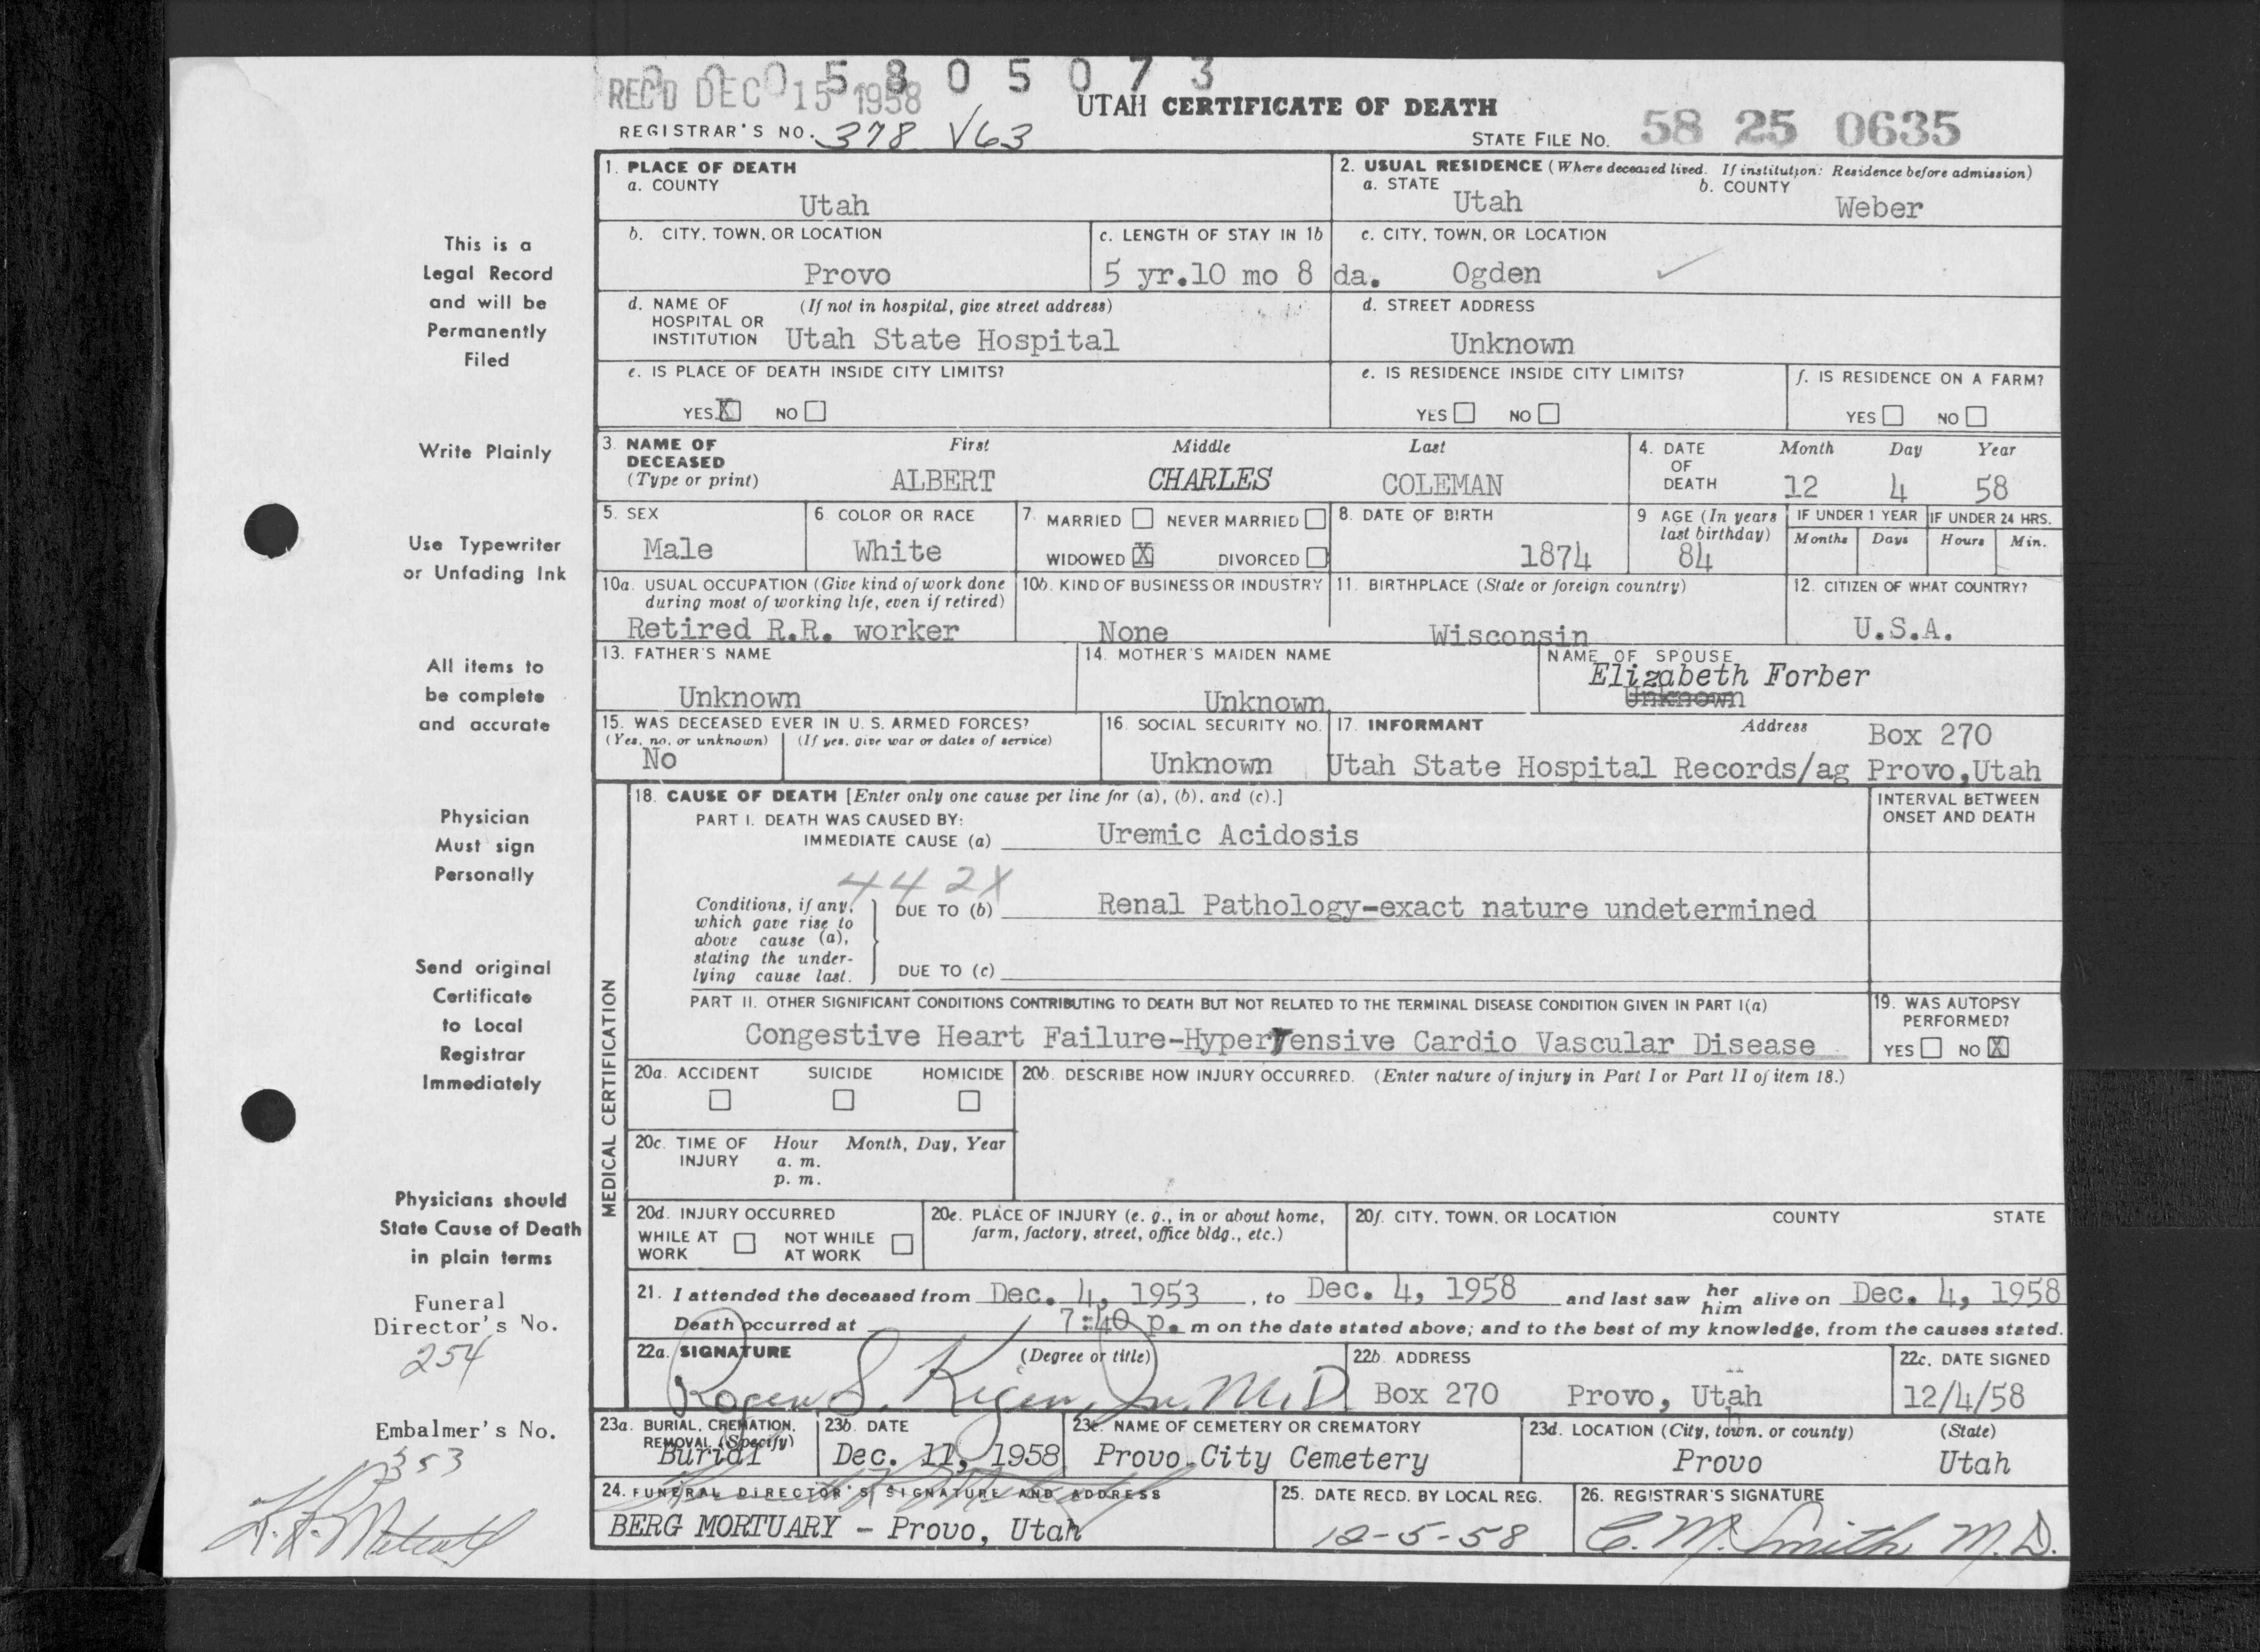 0 0 0 5 8 0 5 0 7 3
REC'D DEC 15 1958
UTAH CERTIFICATE OF DEATH
REGISTRAR'S NO. 378 V63
STATE FILE NO. 58 25 0635
1. PLACE OF DEATH
a. COUNTY
Utah
2. USUAL RESIDENCE (Where deceased lived. If institution: Residence before admission)
a. STATE b. COUNTY
Utah Weber
b. CITY, TOWN, OR LOCATION
Provo
c. LENGTH OF STAY IN 1b
5 yr.10 mo 8 da.
c. CITY, TOWN, OR LOCATION
Ogden
d. NAME OF (If not in hospital, give street address)
HOSPITAL OR
INSTITUTION Utah State Hospital
d. STREET ADDRESS
Unknown
e. IS PLACE OF DEATH INSIDE CITY LIMITS?
YES X NO
e. IS RESIDENCE INSIDE CITY LIMITS?
YES NO
f. IS RESIDENCE ON A FARM?
YES NO
3. NAME OF DECEASED (Type or print)
First Middle Last
ALBERT CHARLES COLEMAN
4. DATE OF DEATH
Month Day Year
12 4 58
5. SEX
Male
6. COLOR OR RACE
White
7. MARRIED NEVER MARRIED
WIDOWED X DIVORCED
8. DATE OF BIRTH
1874
9 AGE (In years last birthday)
84
IF UNDER 1 YEAR
Months Days
IF UNDER 24 HRS.
Hours Min.
10a. USUAL OCCUPATION (Give kind of work done
during most of working life, even if retired)
Retired R.R. worker
10b. KIND OF BUSINESS OR INDUSTRY
None
11. BIRTHPLACE (State or foreign country)
Wisconsin
12. CITIZEN OF WHAT COUNTRY?
U.S.A.
13. FATHER'S NAME
Unknown
14. MOTHER'S MAIDEN NAME
Unknown
NAME OF SPOUSE
Elizabeth Forber
Unknown
15. WAS DECEASED EVER IN U. S. ARMED FORCES?
(Yes, no, or unknown) (If yes, give war or dates of service)
No
16. SOCIAL SECURITY NO.
Unknown
17. INFORMANT Address Box 270
Utah State Hospital Records/ag Provo, Utah
MEDICAL CERTIFICATION
18. CAUSE OF DEATH [Enter only one cause per line for (a), (b), and (c).]
INTERVAL BETWEEN
ONSET AND DEATH
PART I. DEATH WAS CAUSED BY:
IMMEDIATE CAUSE (a) Uremic Acidosis
442X
Conditions, if any,
which gave rise to
above cause (a),
stating the under-
lying cause last.
DUE TO (b) Renal Pathology-exact nature undetermined
DUE TO (c)
PART II. OTHER SIGNIFICANT CONDITIONS CONTRIBUTING TO DEATH BUT NOT RELATED TO THE TERMINAL DISEASE CONDITION GIVEN IN PART I(a)
Congestive Heart Failure-Hypertensive Cardio Vascular Disease
19. WAS AUTOPSY
PERFORMED?
YES NO X
20a. ACCIDENT SUICIDE HOMICIDE
20b. DESCRIBE HOW INJURY OCCURRED. (Enter nature of injury in Part I or Part II of item 18.)
20c. TIME OF INJURY Hour Month, Day, Year
a. m.
p. m.
20d. INJURY OCCURRED
WHILE AT WORK NOT WHILE AT WORK
20e. PLACE OF INJURY (e. g., in or about home,
farm, factory, street, office bldg., etc.)
20f. CITY, TOWN, OR LOCATION COUNTY STATE
21. I attended the deceased from Dec. 4, 1953, to Dec. 4, 1958 and last saw her him alive on Dec. 4, 1958
Death occurred at 7:40 p. m on the date stated above; and to the best of my knowledge, from the causes stated.
22a. SIGNATURE (Degree or title)
M.D.
22b. ADDRESS
Box 270 Provo, Utah
22c. DATE SIGNED
12/4/58
23a. BURIAL, CREMATION,
REMOVAL (Specify)
Burial
23b. DATE
Dec. 11, 1958
23c. NAME OF CEMETERY OR CREMATORY
Provo City Cemetery
23d. LOCATION (City, town, or county) (State)
Provo Utah
24. FUNERAL DIRECTOR'S SIGNATURE AND ADDRESS
BERG MORTUARY - Provo, Utah
25. DATE RECD. BY LOCAL REG.
12-5-58
26. REGISTRAR'S SIGNATURE
C. M. Smith M.D.
This is a
Legal Record
and will be
Permanently
Filed
Write Plainly
Use Typewriter
or Unfading Ink
All items to
be complete
and accurate
Physician
Must sign
Personally
Send original
Certificate
to Local
Registrar
Immediately
Physicians should
State Cause of Death
in plain terms
Funeral
Director's No.
254
Embalmer's No.
353